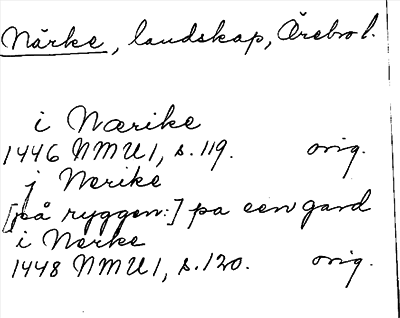 Närke, landskap, Örebro l.
i Nærike
1446 NMU 1, s. 119. orig.
j Nerike
[på ryggen:] pa een gard
i Nerke
1448 NMU 1, s. 120. orig.